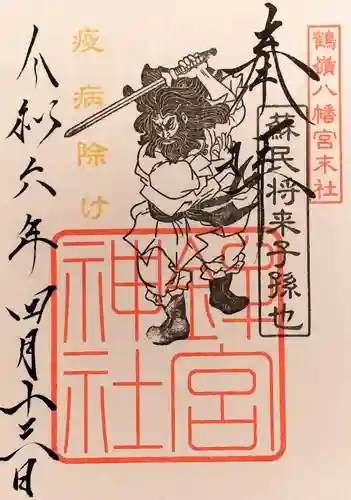 鶴嶺八幡宮末社
奉拝
蘇民将来子孫也
疫病除け
神社
令和六年四月十六日